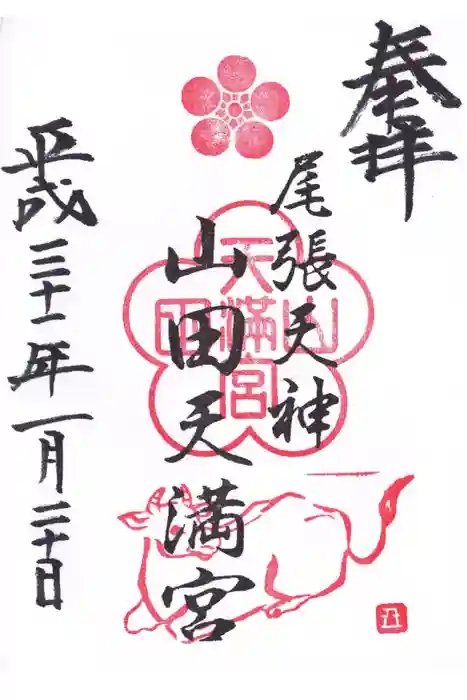 奉拝
尾張天神
山田天満宮
平成三十一年一月二十日
山田
天満宮
丑